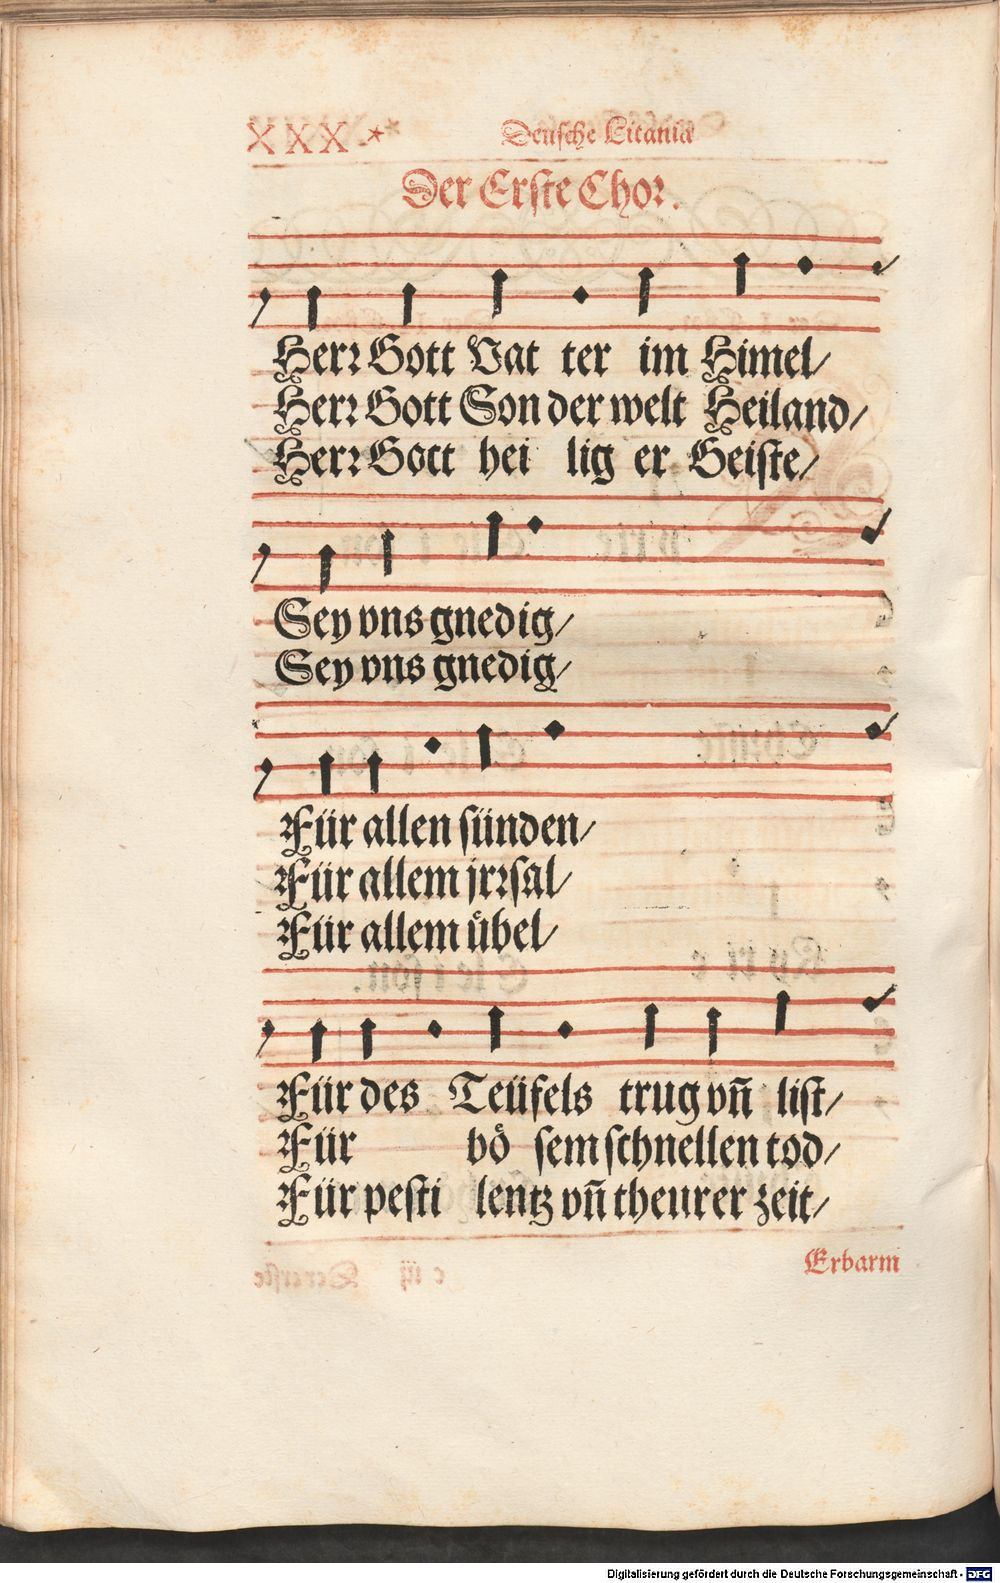 XXX *
Deusche Litania
Der Erste Chor.
Herr Gott Vat ter im Himel/
Herr Gott Son der welt Heiland/
Herr Gott hei lig er Geiste/
Sey vns gnedig/
Sey vns gnedig/
Für allen sünden/
Für allem jrrsal/
Für allem übel/
Für des Teüfels trug vñ list/
Für bö sem schnellen tod/
Für pesti lentz vñ theurer zeit/
Erbarm
Digitalisierung gefördert durch die Deutsche Forschungsgemeinschaft - DFG